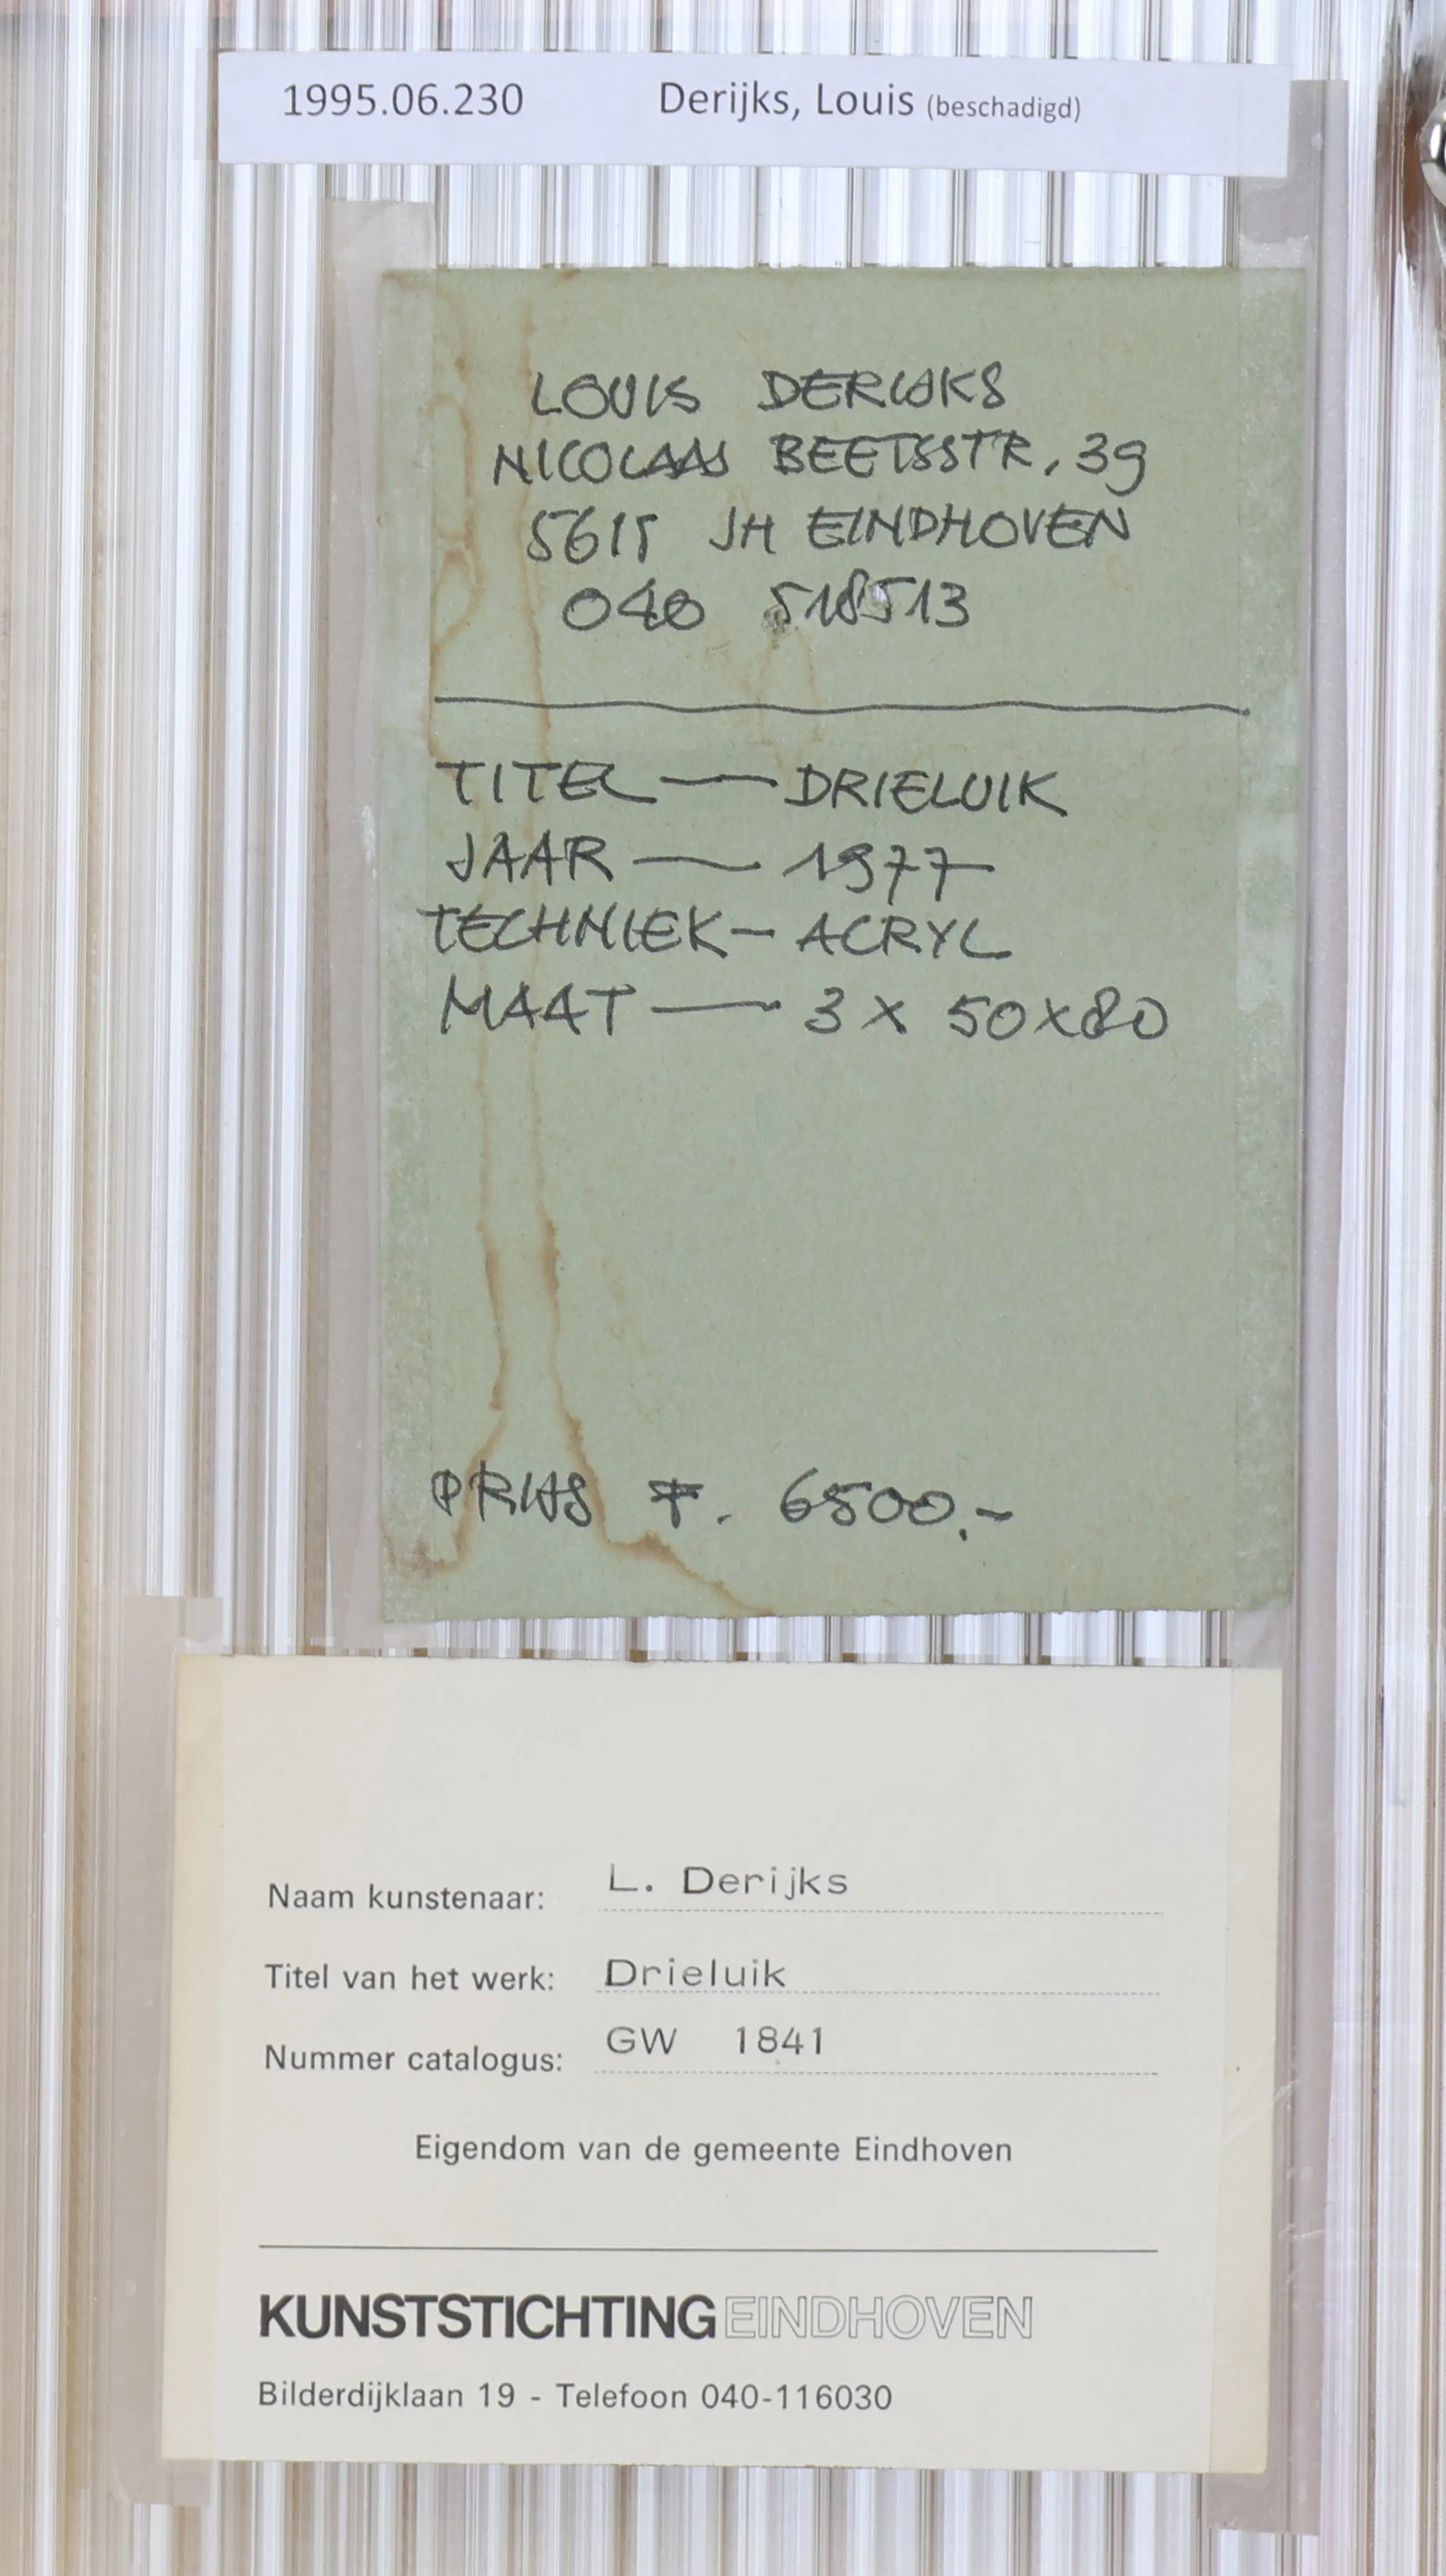 1995.06.230 Derijks, Louis (beschadigd)
LOUIS DERIJKS
NICOLAAS BEETSSTR. 39
5615 JH EINDHOVEN
040 518513
TITEL — DRIELUIK
JAAR — 1977
TECHNIEK — ACRYL
MAAT — 3 x 50x80
PRIJS F. 6500.-
Naam kunstenaar: L. Derijks
Titel van het werk: Drieluik
Nummer catalogus: GW 1841
Eigendom van de gemeente Eindhoven
KUNSTSTICHTING EINDHOVEN
Bilderdijklaan 19 - Telefoon 040-116030